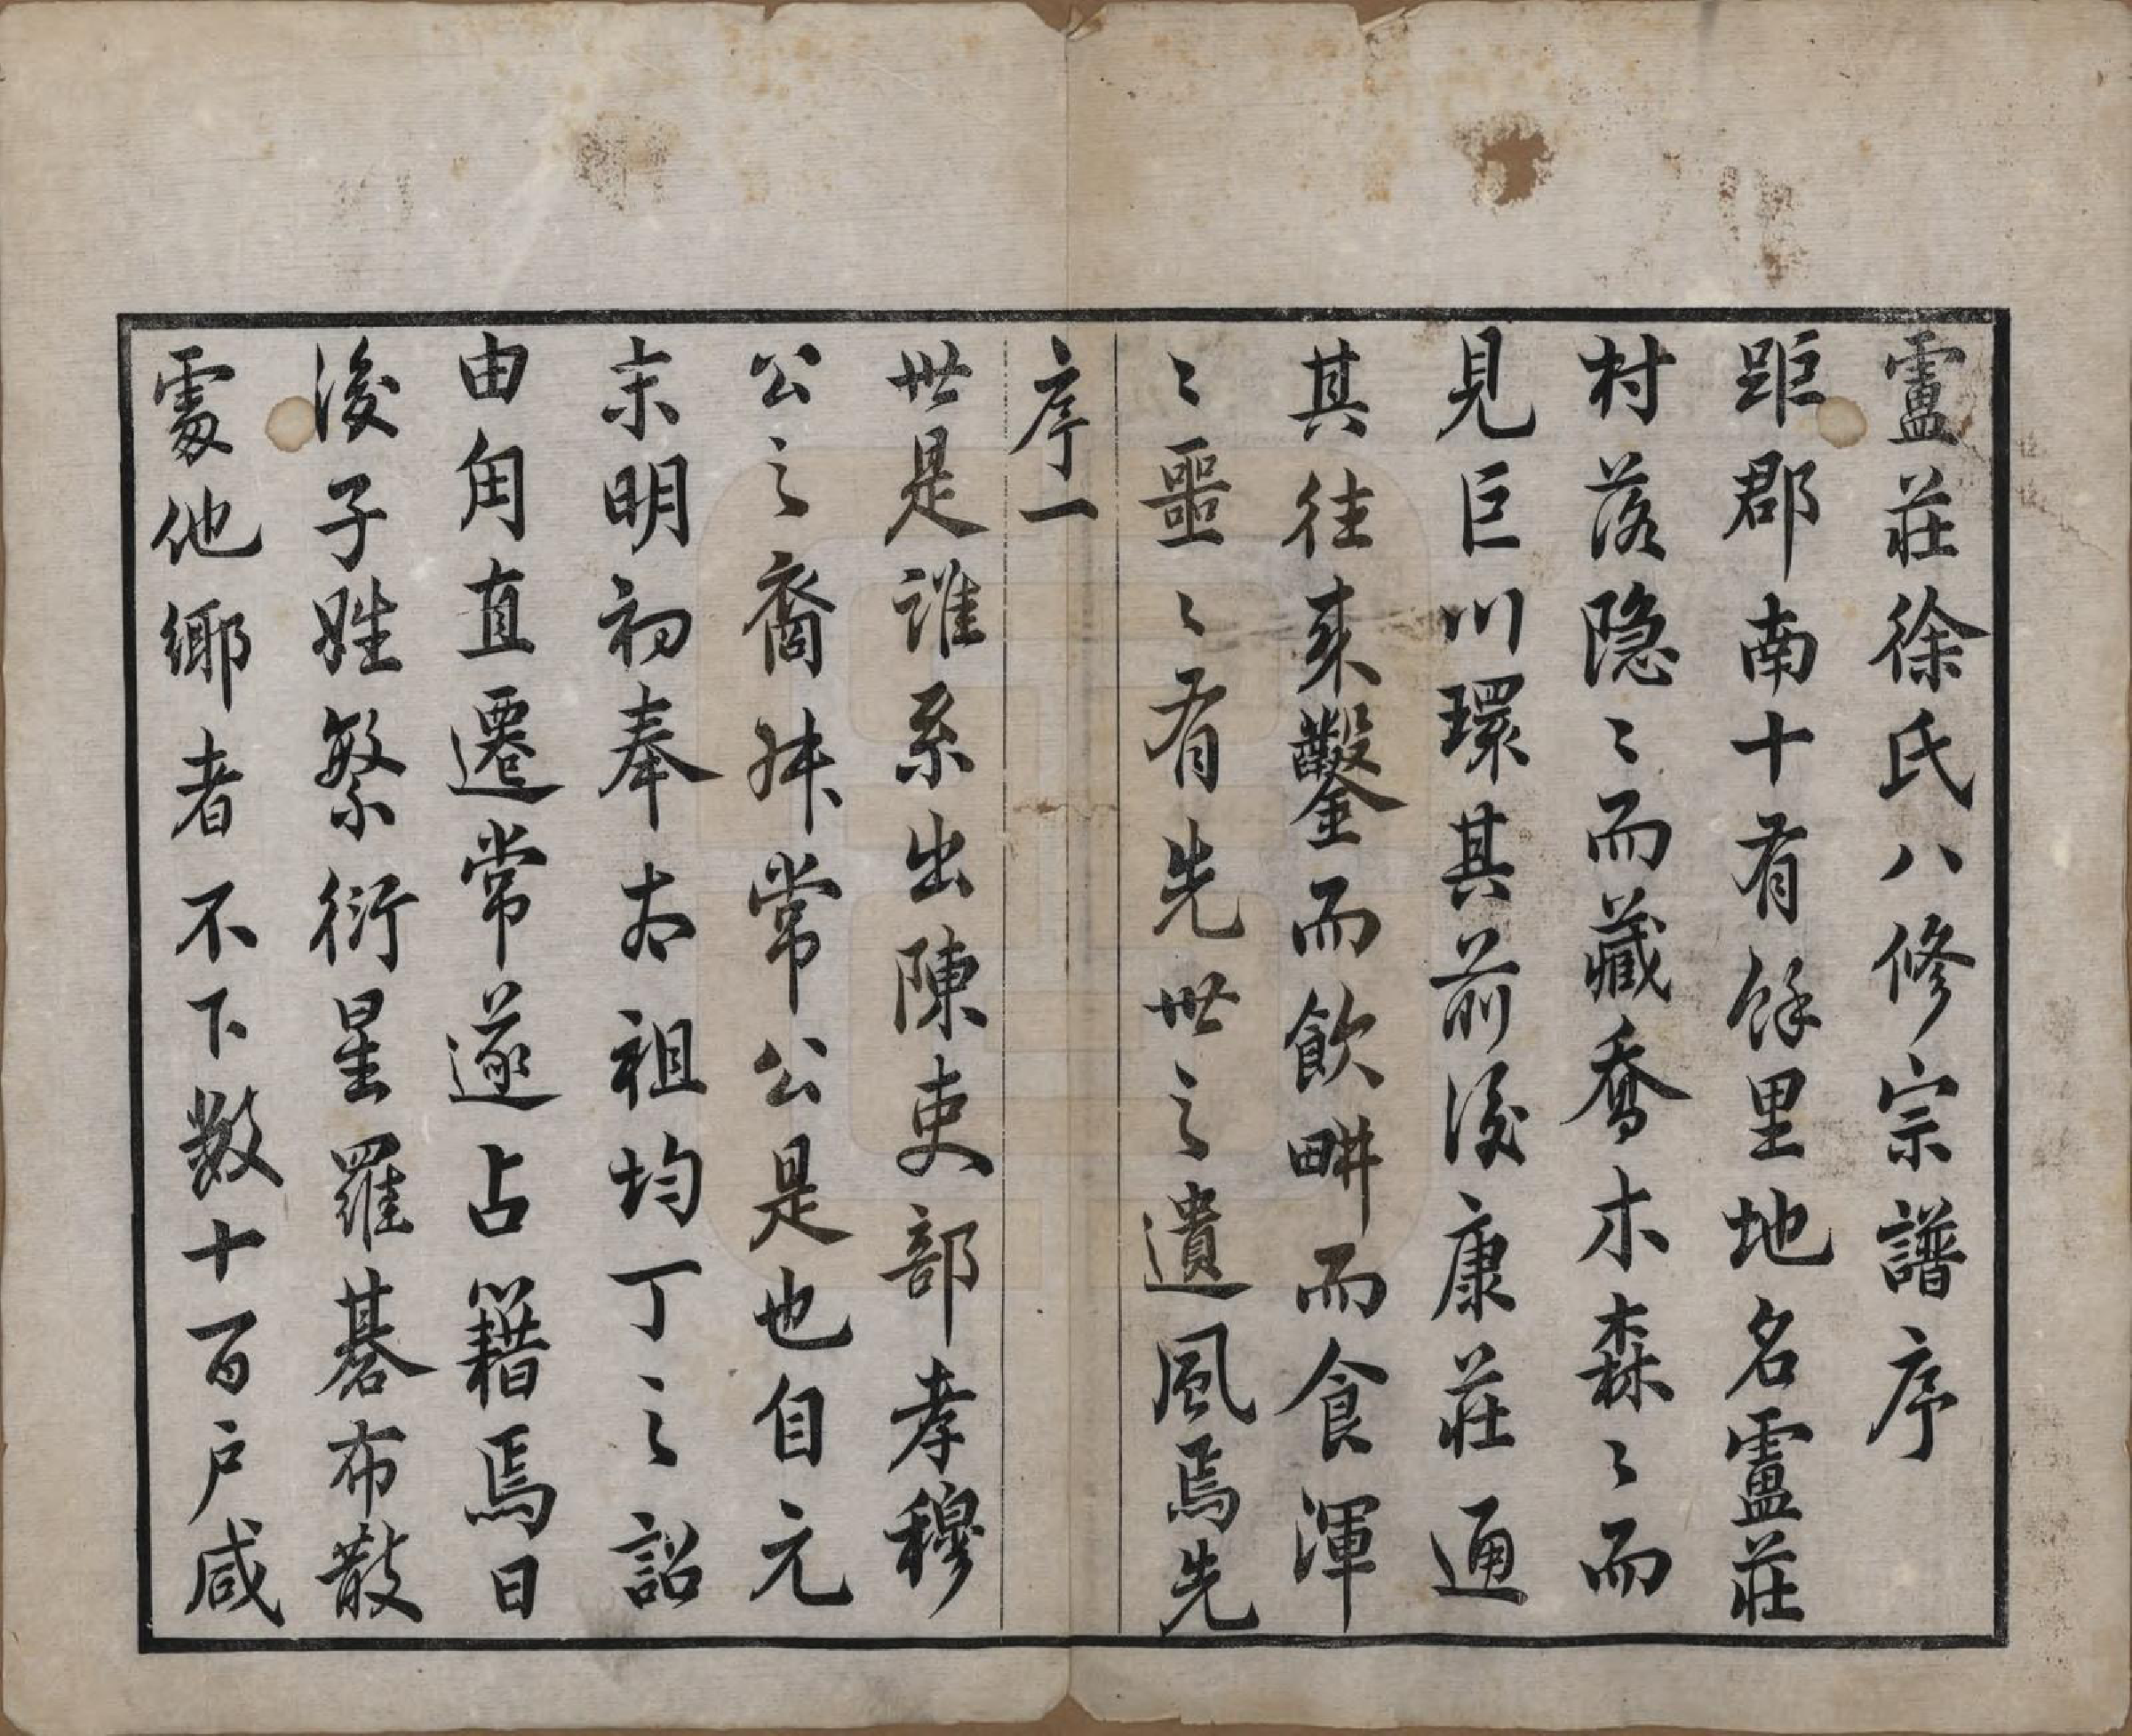 盧莊徐氏八修宗譜序
距郡南十有餘里地名盧莊
村落隱〻而藏喬木森〻而
見巨川環其前後康莊通
其往來鑿而飲畊而食渾
〻噩〻有先世之遺風焉先
序一
世是誰系出陳吏部孝穆
公之裔姝常公是也自元
末明初奉太祖均丁之詔
由甪直遷常遂占籍焉日
後子姓繁衍星羅碁布散
處他鄉者不下數十百户咸